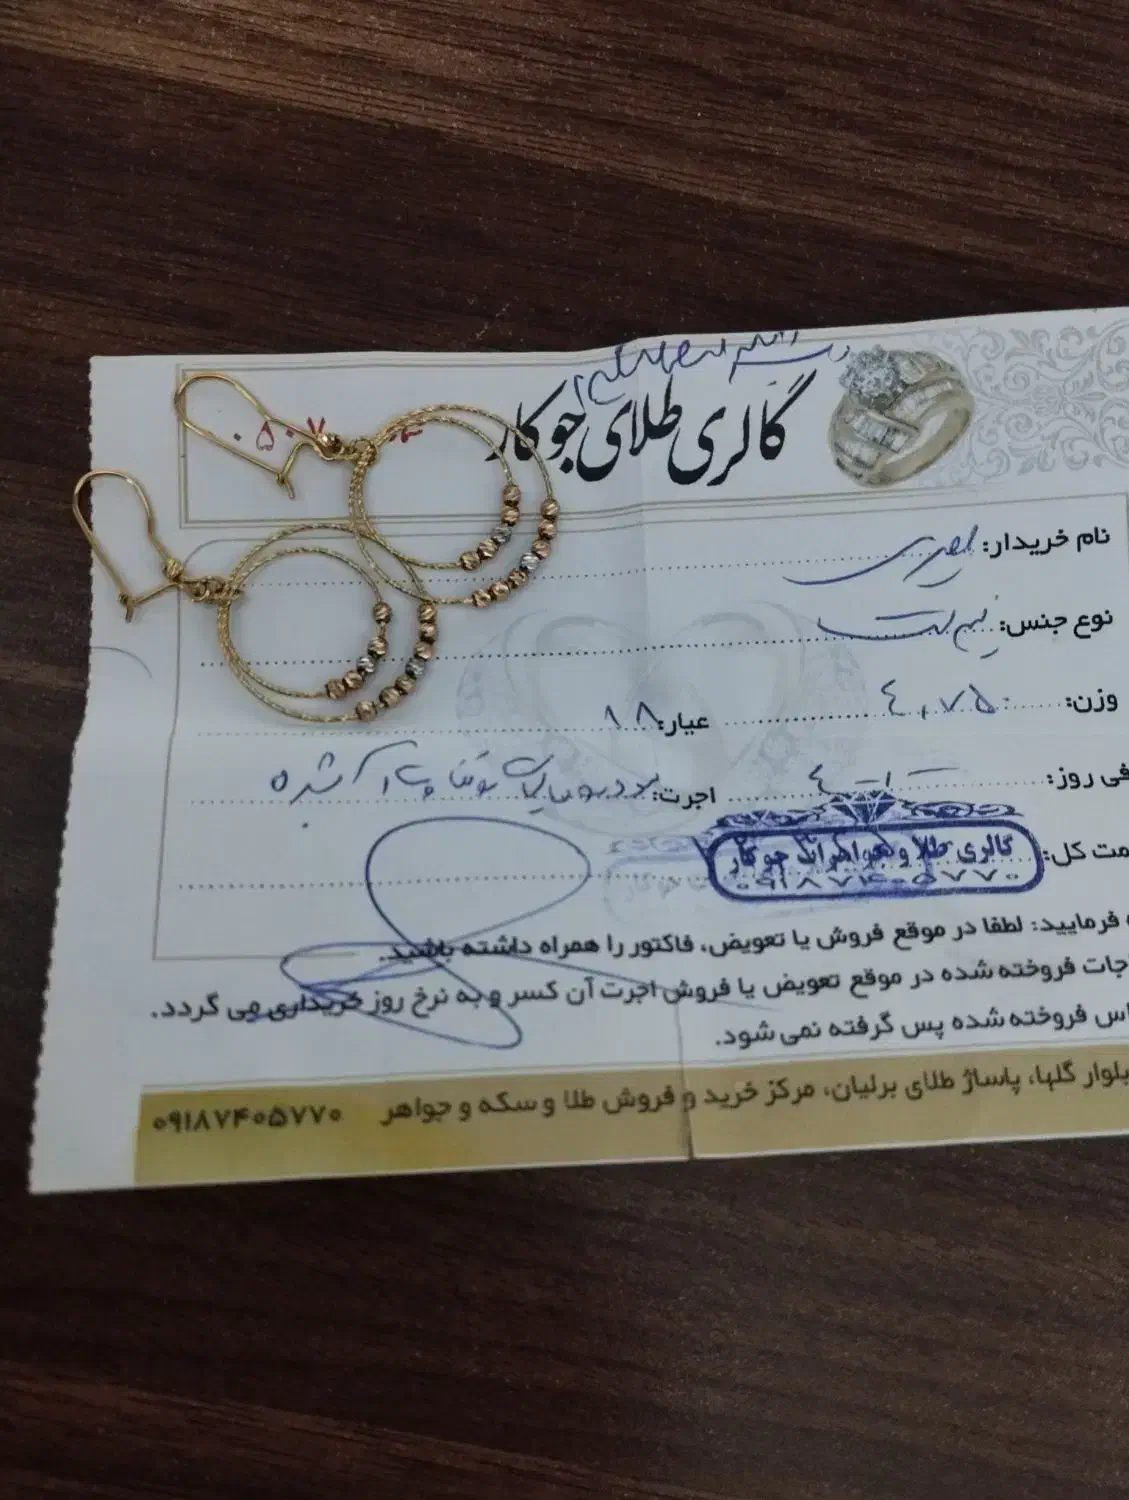 گالری طلای جوکار
نام خریدار:
نوع جنس: نیم ست
وزن: ۴,۷۵۰ عیار: ۱۸
فی روز: اجرت:
مت کل:
گالری طلا و جواهرات جوکار
۰۹۱۸۷۴۰۵۷۷۰
ه فرمایید: لطفا در موقع فروش یا تعویض، فاکتور را همراه داشته باشید.
جات فروخته شده در موقع تعویض یا فروش اجرت آن کسر و به نرخ روز خریداری می گردد.
اس فروخته شده پس گرفته نمی شود.
بلوار گلها، پاساژ طلای برلیان، مرکز خرید و فروش طلا و سکه و جواهر ۰۹۱۸۷۴۰۵۷۷۰